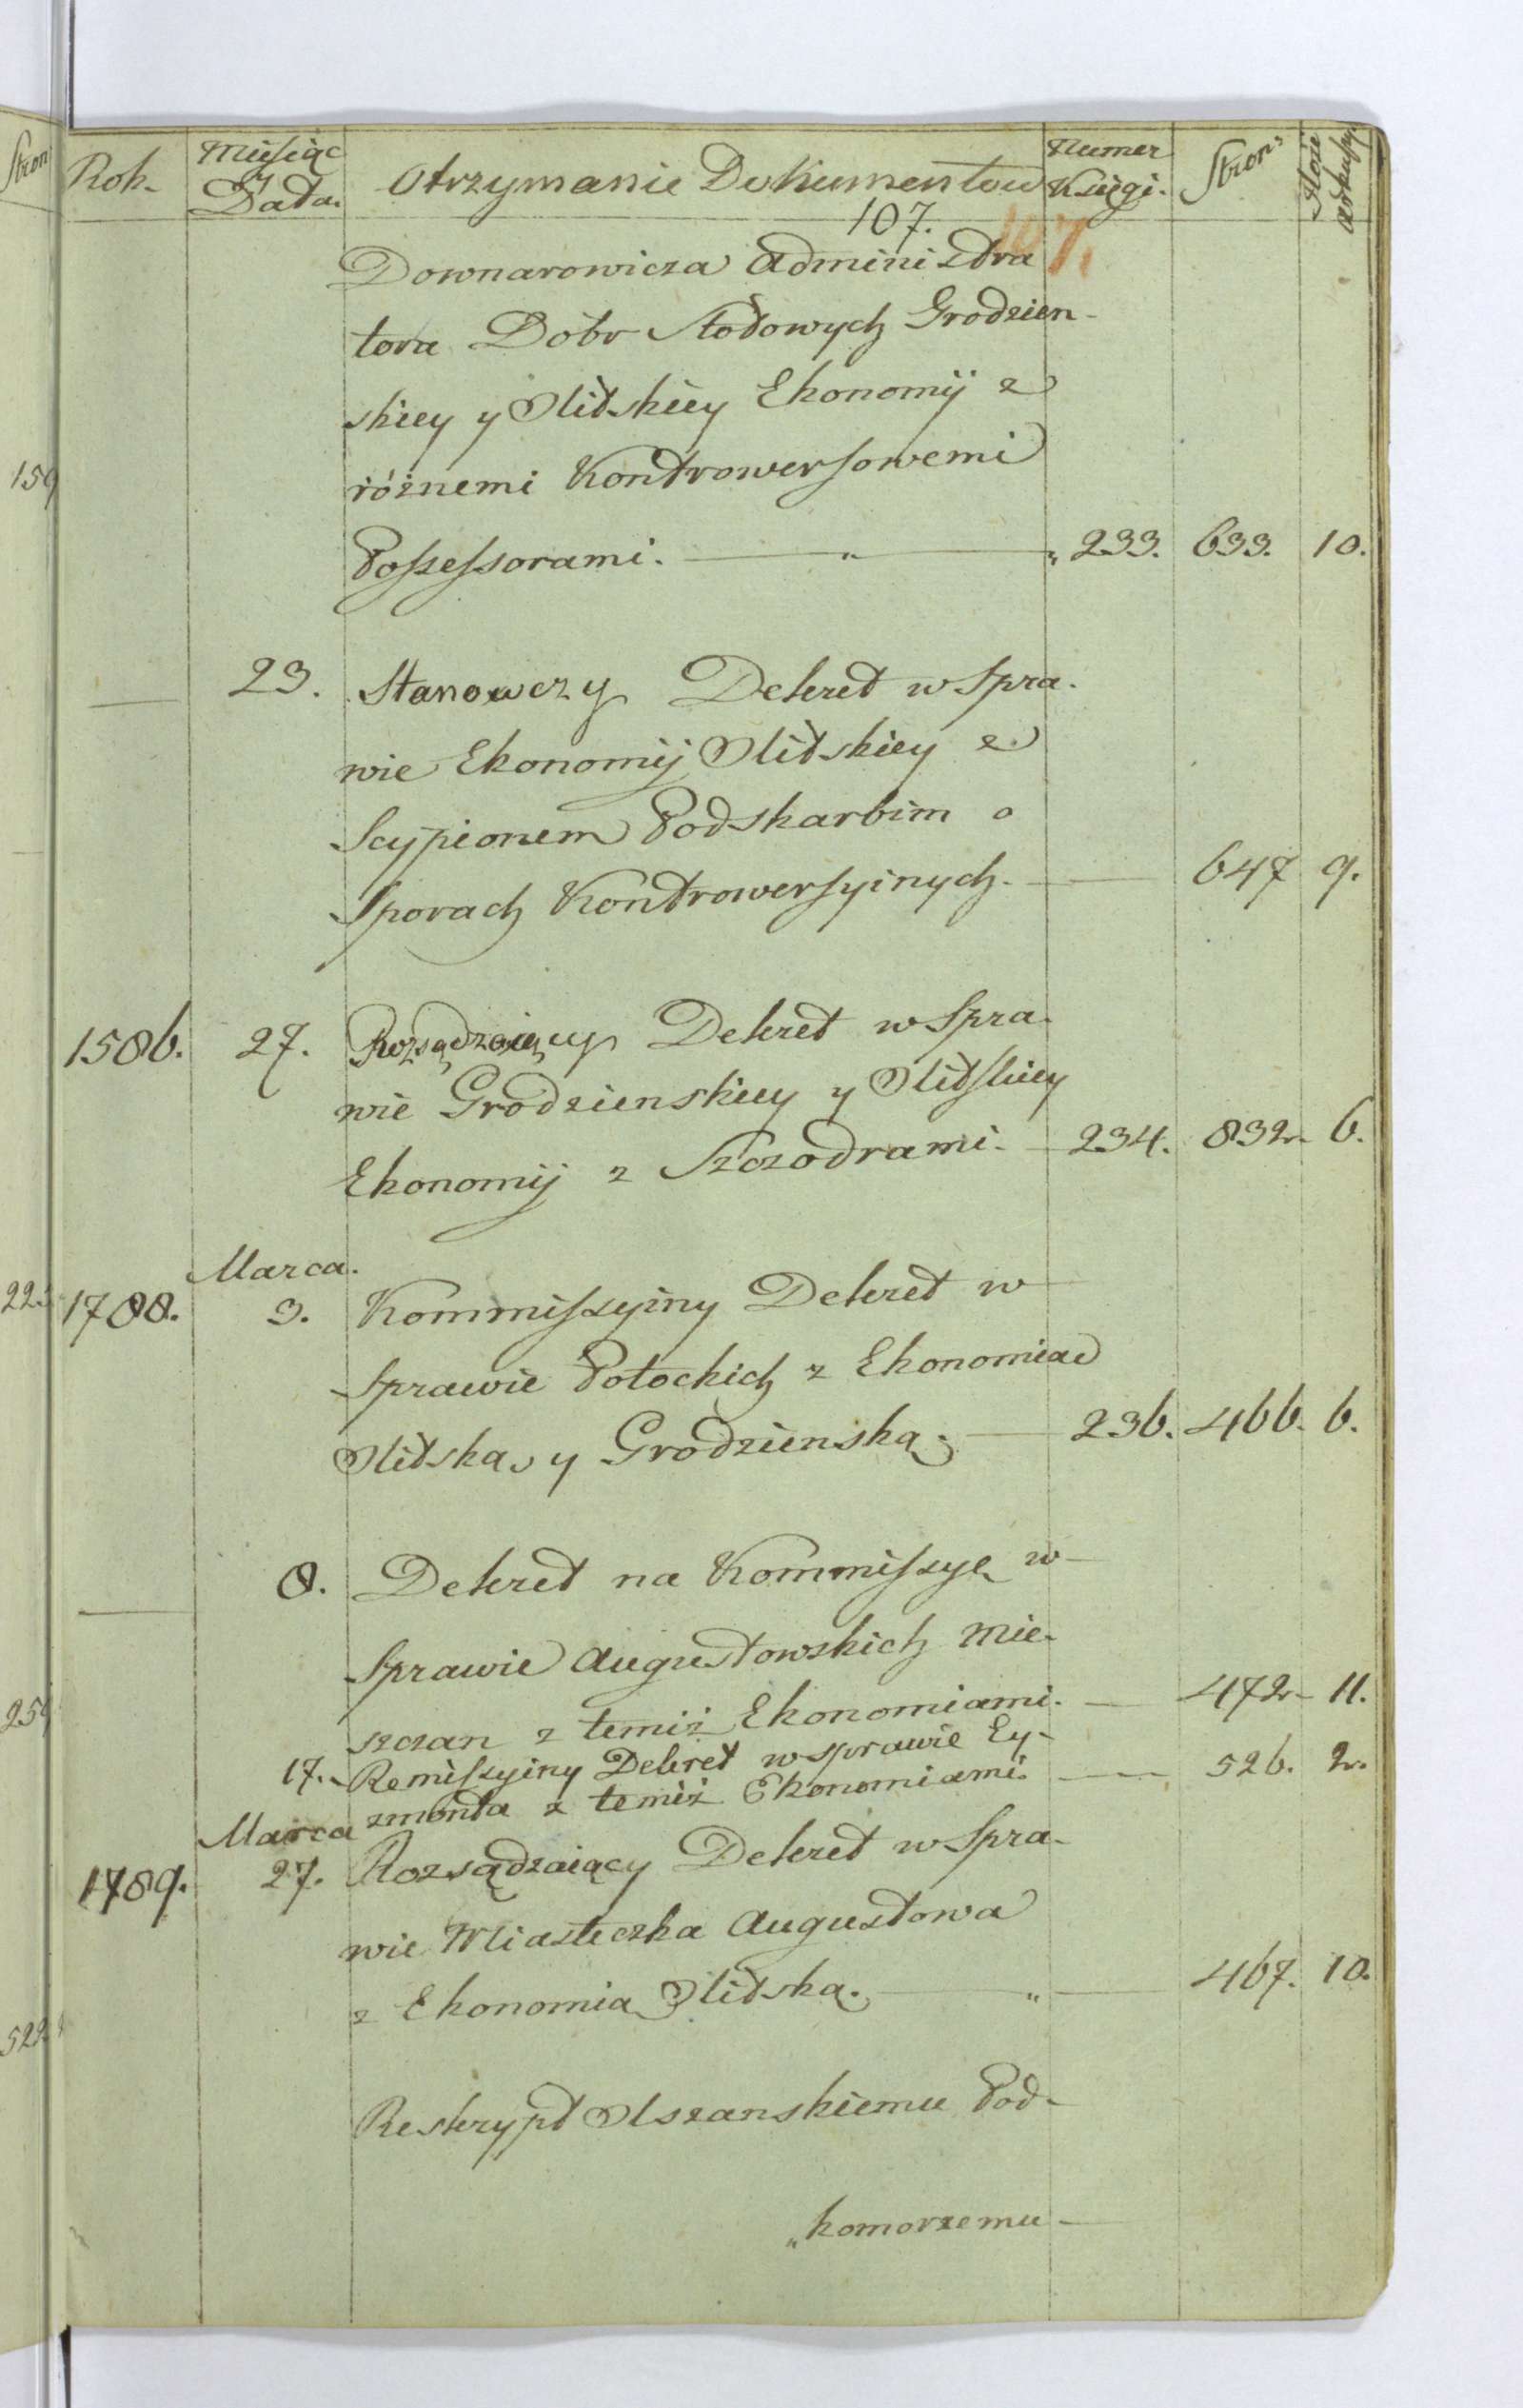 Stron
Rok.
Miesiąc
y
Data.
Otrzymanie Dokumentow
Numer
Księgi.
Stron:
Ilość
arkuszy
107.
107.
Downarowicza Administra
tora Dobr Stołowych Grodzien-
skiey y Olitskiey Ekonomij z
159
różnemi Kontrowersowemi
Possessorami. 233. 633. 10.
23. Stanowczy Dekret w Spra-
wie Ekonomij Olitskiey z
Scypionem Podskarbim o
Sporach Kontrowersyinych. 647 9.
1586. 27. Rozsądzaiący Dekret w Spra-
wie Grodzienskiey y Olitskiey
Ekonomij z Szczodrami. 234. 832. 6.
Marca.
1788. 3. Kommissyiny Dekret w
Sprawie Potockich z Ekonomia
Olitska, y Grodzienską. 236. 466. 6.
8. Dekret na Kommissyę w
Sprawie Augustowskich Mie-
szczan z temiż Ekonomiami. 472. 11.
17. Remissyiny Dekret w sprawie Ey-
zmonta z temiż Ekonomiami. 526. 2.
Marca
1789. 27. Rozsądzaiący Dekret w Spra-
wie Miasteczka Augustowa
z Ekonomią Olitską. 467. 10.
Reskrypt Olszanskiemu Pod-
„komorzemu